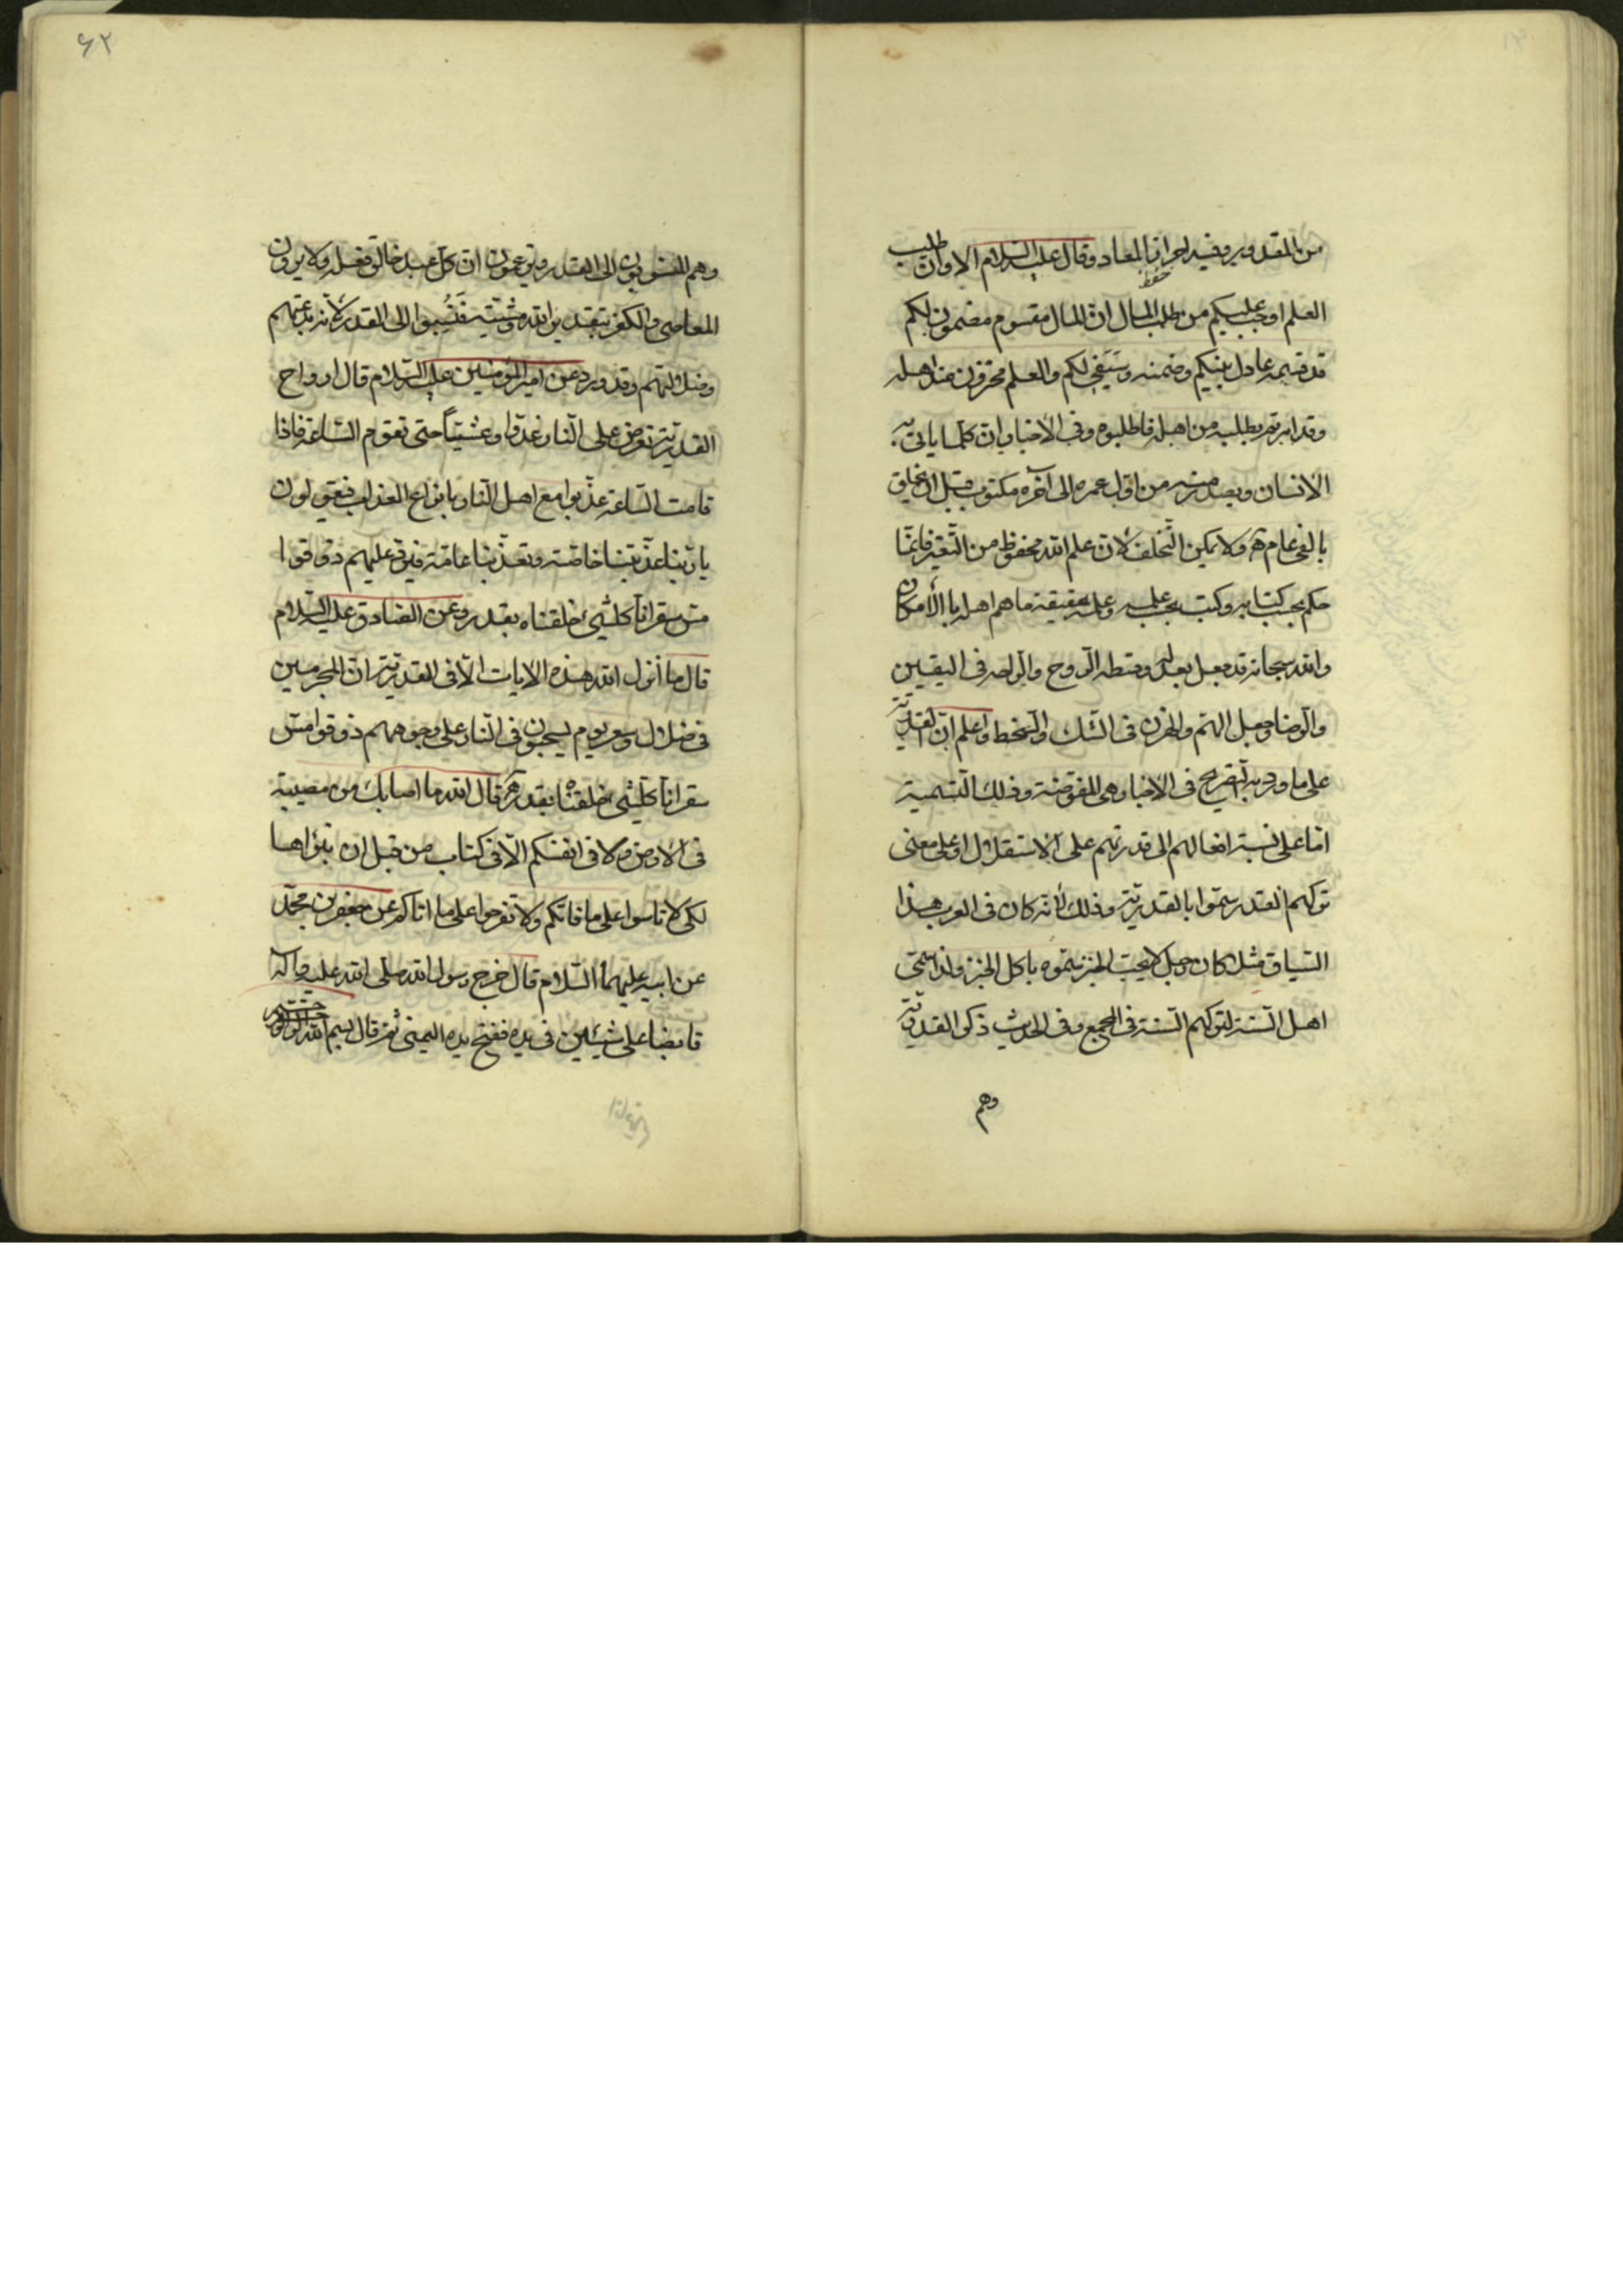 من المقدور وفيه اجر انباء المعاد وقال عليه السلام الا وان طلب
العلم اوجب عليكم من طلب المال ان المال مقسوم مضمون لكم
قد قسمه عادل بينكم وضمنه وسيفي لكم والعلم مخزون عند اهله
وقد امرتم بطلبه من اهله فاطلبوه وفي الاخبار ان كلما ياتي به
الانسان ويصدر منه من اول عمره الى آخره مكتوب قبل ان يخلق
بالفي عام ولا يمكن التخلف لان علم الله محفوظ من التغير فانما
حكم بحسب كتابه وكتب بحسب علمه وعلمه بحقيقة ما هم اهله بالأمكان
والله سبحانه قد جعل بعدله وقسطه الروح والراحة في اليقين
والرضا وجعل الهم والحزن في الشك والسخط واعلم ان القدرية
على ما ورد به التصريح في الاخبار هي المفوضة وذلك التسمية
اما على نسبة افعالهم الى قدرتهم على الاستقلال او على معنى
تركهم القدر سموا بالقدرية وذلك لأنه كان في العرب هذا
السياق مثلا كان رجل لا يحب الخبز سموه باكل الخبز ولذا سمى
اهل السنة لتركهم السنة في المجمع وفي الحديث ذكر القدرية
وهم
۶۲
وهم المنسوبون الى القدر ويزعمون ان كل عبد خالق فعله ولا يرون
المعاصي والكفر بتقدير الله ومشيته فنسبوا الى القدر لأنه بدعتهم
وضلالتهم وقد ورد عن امير المؤمنين عليه السلام قال ارواح
القدرية تعرض على النار غدوا وعشيا حتى تقوم الساعة فاذا
قامت الساعة عذبوا مع اهل النار بانواع العذاب فيقولون
يا ربنا عذبتنا خاصة وتعذبنا عامة فيرد عليهم ذوقوا
مس سقر انا كلشيئ خلقناه بقدر وعن الصادق عليه السلام
قال ما أنزل الله هذه الايات الا في القدرية ان المجرمين
في ضلال وسعر يوم يسحبون في النار على وجوههم ذوقوا مس
سقر انا كلشيئ خلقناه بقدر قال الله ما اصابك من مصيبة
في الارض ولا في انفسكم الا في كتاب من قبل ان نبرأها
لكي لا تاسوا على ما فاتكم ولا تفرحوا على ما اتاكم عن جعفر بن محمد
عن ابيه عليهما السلام قال خرج رسول الله صلى الله عليه وآله
قابضا على شيئين في يده ففتح يده اليمنى ثم قال بسم الله